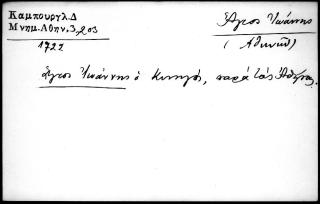 Καμπουργλ.Δ
Μνημ.Αθην.3,203
1722
Ἅγιος Ἰωάννης
(Ἀθηνῶν)
Ἅγιος Ἰωάννης ὁ Κυνηγός, παρά τάς Ἀθήνας.